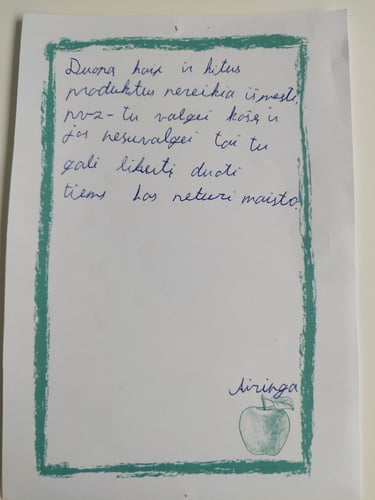 Duoną kaip ir kitus
produktus nereikia išmesti,
pvz- tu valgei košę ir
jos nesuvalgei tai tu
gali likertį duoti
tiems kas neturi maisto.
Airinga